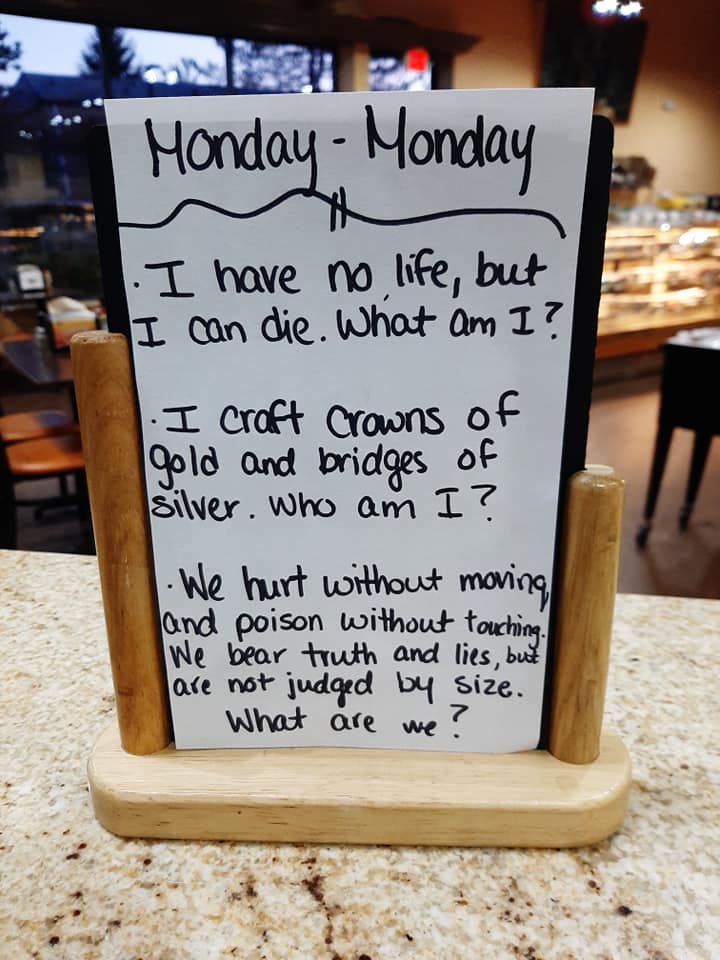 Monday - Monday
· I have no life, but
I can die. What am I?
· I craft crowns of
gold and bridges of
silver. Who am I?
· We hurt without moving,
and poison without touching.
We bear truth and lies, but
are not judged by size.
What are we?